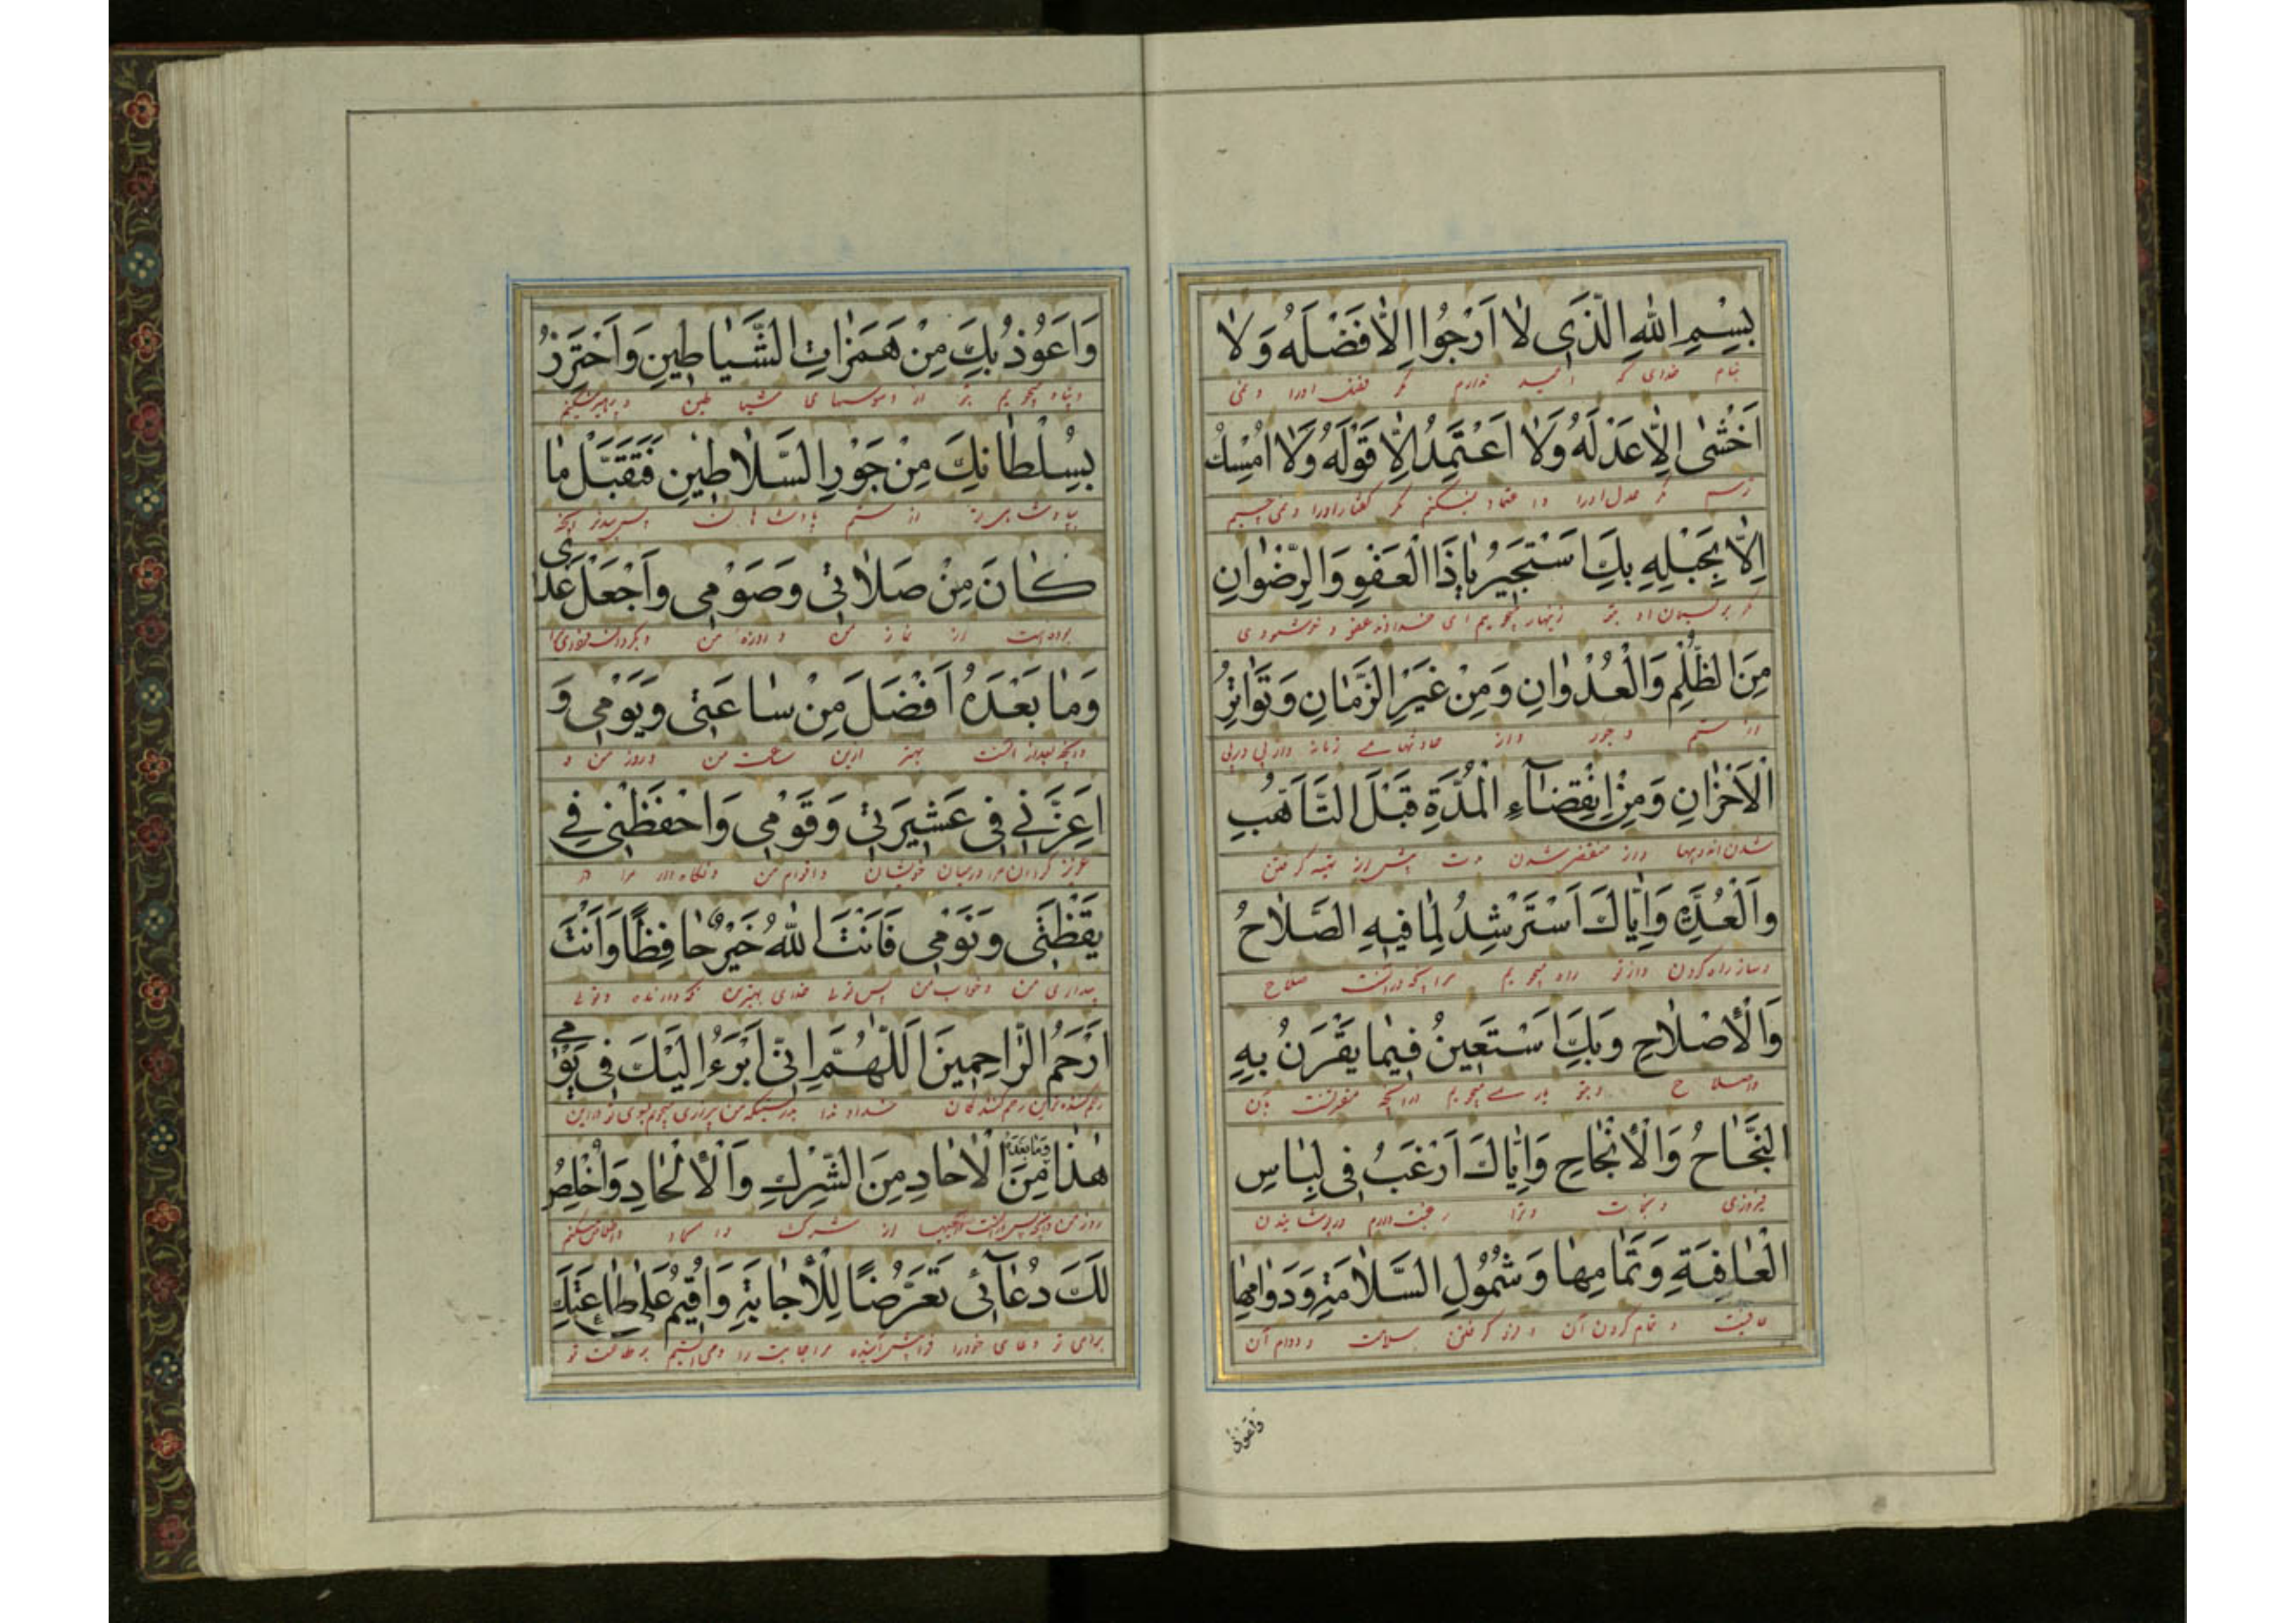 بِسْمِ اللهِ الَّذَی لٰا اَرْجُوا اِلّٰا فَضْلَهُ وَلٰا
بنام خدای که امید ندارم مگر فضل اورا و نمی
اَخْشٰی اِلّٰا عَدْلَهُ وَلٰا اَعْتَمِدُ اِلّٰا قَوْلَهُ وَلٰا اُمْسِكُ
ترسم مگر عدل اورا و اعتماد نمیکنم مگر گفتار اورا و نمی چسبم
اِلّٰا بِحَبْلِهِ بِكَ اَسْتَجیٖرُ یٰا ذَا الْعَفْوِ وَالرِّضْوٰانِ
مگر بریسمان او بتو زینهار میجویم ای خداوند عفو و خوشنودی
مِنَ الظُّلْمِ وَالْعُدْوٰانِ وَمِنْ غَیَرِ الزَّمٰانِ وَتَوٰاتُرِ
از ستم و جور و از حادثهای زمانه و از پی در پی
الْاَحْزٰانِ وَمِنْ اِنْقِضٰآءِ الْمُدَّةِ قَبْلَ التَّاَهُّبِ
شدن اندوهها و از منقضی شدن مدت پیش از تهیه گرفتن
وَالْعُدَّةِ وَاِیّٰاكَ اَسْتَرْشِدُ لِمٰا فیٖهِ الصَّلٰاحُ
و ساز راه کردن و از تو راه میجویم مر آنچه در آنست صلاح
وَالْاِصْلٰاحِ وَبِكَ اَسْتَعیٖنُ فیٖمٰا یَقْرَنُ بِهِ
و اصلاح و بتو یاری میجویم در آنچه مقرنست بآن
النَّجٰاحُ وَالْاِنْجٰاحِ وَاِیّٰاكَ اَرْغَبُ فیٖ لِبٰاسِ
فیروزی و نجات و ترا رغبت دارم در پوشانیدن
الْعٰافِیَةِ وَتَمٰامِهٰا وَشُمُولِ السَّلٰامَةِ وَدَوٰامِهٰا
عافیت و تمام کردن آن و فرو گرفتن سلامت و دوام آن
واعوذ
وَاَعَوُذُ بِكَ مِنْ هَمَزٰاتِ الشَّیٰاطیٖنِ وَاَحْتَرِزُ
و پناه میجویم بتو از وسوسهای شیاطین و پرهیز میکنم
بِسُلْطٰانِكَ مِنْ جَوْرِ السَّلٰاطیٖنِ فَتَقَبَّلْ مٰا
بپادشاهی تو از ستم پادشاهان پس بپذیر آنچه
كٰانَ مِنْ صَلٰاتیٖ وَصَوْمیٖ وَاَجْعَلْ غَدیٖ
بوده است از نماز من و روزه من و بگردان فردای مرا
وَمٰا بَعْدَهُ اَفْضَلَ مِنْ سٰاعَتیٖ وَیَوْمیٖ وَ
و آنچه بعد از آنست بهتر ازین ساعت من و روز من و
اَعِزَّنیٖ فیٖ عَشیٖرَتیٖ وَقَوْمیٖ وَاحْفَظْنیٖ فِی
عزیز گردان مرا در میان خویشان و اقوام من و نگاه دار مرا در
یَقْظَتیٖ وَنَوْمیٖ فَاَنْتَ اللهُ خَیْرٌ حٰافِظًا وَاَنْتَ
بیداری من و خواب من پس توئی خدای بهترین نگه دارنده و توئی
اَرْحَمُ الرّٰاحِمیٖنَ اَللّٰهُمَّ اِنّیٖ اَبْرَءُ اِلَیْكَ فیٖ یَوْمیٖ
رحم کننده ترین رحم کنندگان خداوندا بدرستیکه من بیزاری میجویم بسوی تو در این
هٰذٰا وَمٰا بَعْدَهُ مِنَ الْاٰحٰادِ مِنَ الشِّرْكِ وَالْاِلْحٰادِ وَاُخْلِصُ
روز من و آنچه پس از آنست از یکشنبها از شرک و الحاد و خالص میکنم
لَكَ دُعٰآئیٖ تَعَرُّضًا لِلْاِجٰابَةِ وَاُقیٖمُ عَلٰی طٰاعَتِكَ
برای تو دعای خودرا فرا پیش آینده مر اجابت را و می ایستم بر طاعت تو